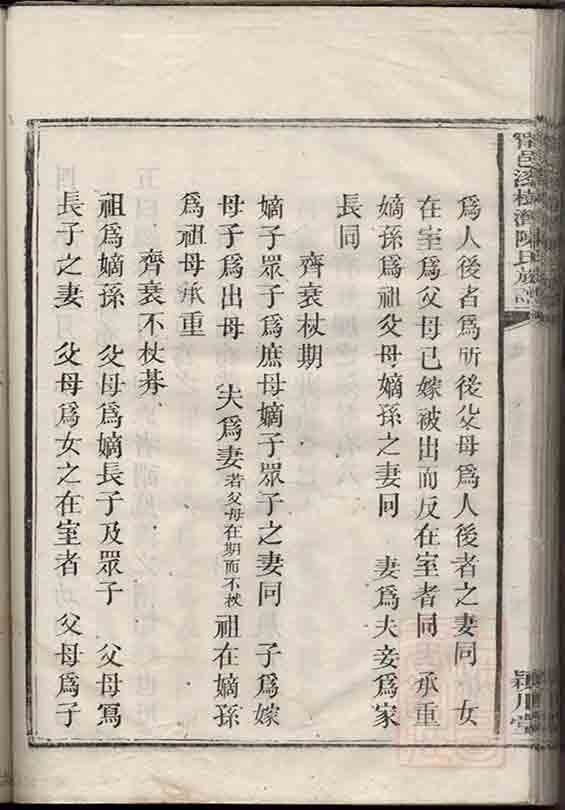 為人後者為所後父母為人後者之妻同 女
在室為父母已嫁被出而反在室者同 承重
嫡孫為祖父母嫡孫之妻同 妻為夫妾為家
長同
齊衰杖期
嫡子眾子為庶母嫡子眾子之妻同 子為嫁
母子為出母 夫為妻若父母在期而不杖 祖在嫡孫
為祖母承重
齊衰不杖朞
祖為嫡孫 父母為嫡長子及眾子 父母為
長子之妻 父母為女之在室者 父母為子
陳氏族譜
潁川堂